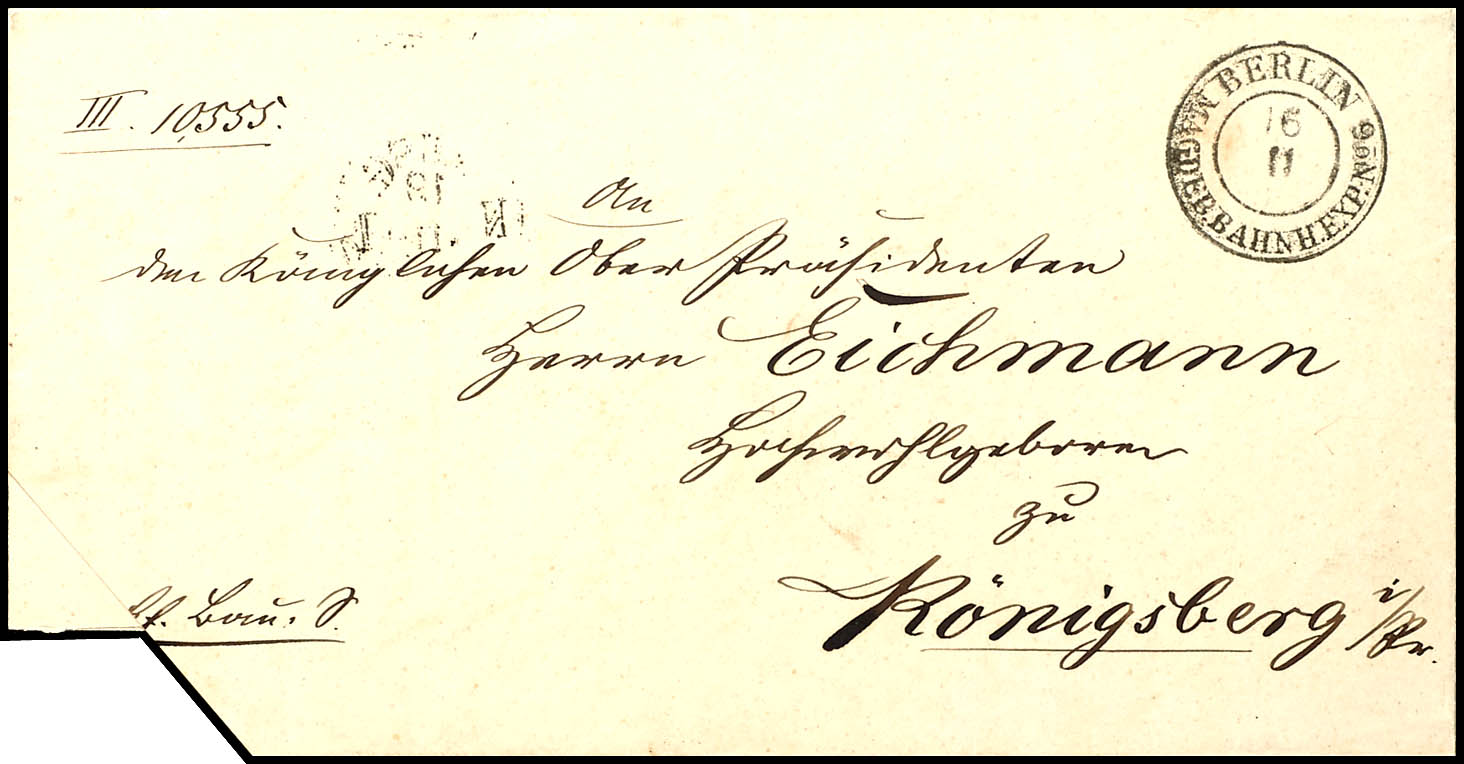 III. 10,555.
BERLIN
16
11
MAGDEB. BAHNH. EXP. No 6
An
den Königlichen Ober Präsidenten
Herrn Eichmann
Hochwohlgeboren
zu
Königsberg i/Pr.
Bau. S.